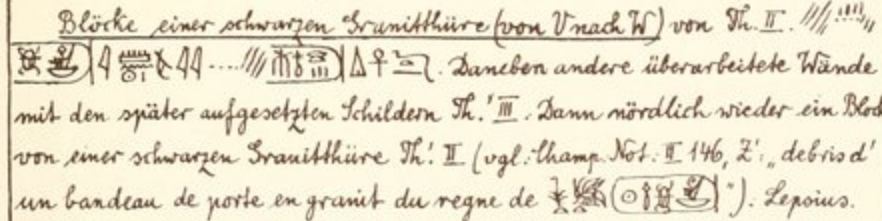 Blöcke einer schwarzen Granitthüre (von V nach W) von Th. II.
Daneben andere überarbeitete Wände
mit den später aufgesetzten Schildern Th.' III. Dann nördlich wieder ein Block
von einer schwarzen Granitthüre Th.' II (vgl. Champ. Not. II 146, Z': „debris d'
un bandeau de porte en granit du regne de "). Lepsius.